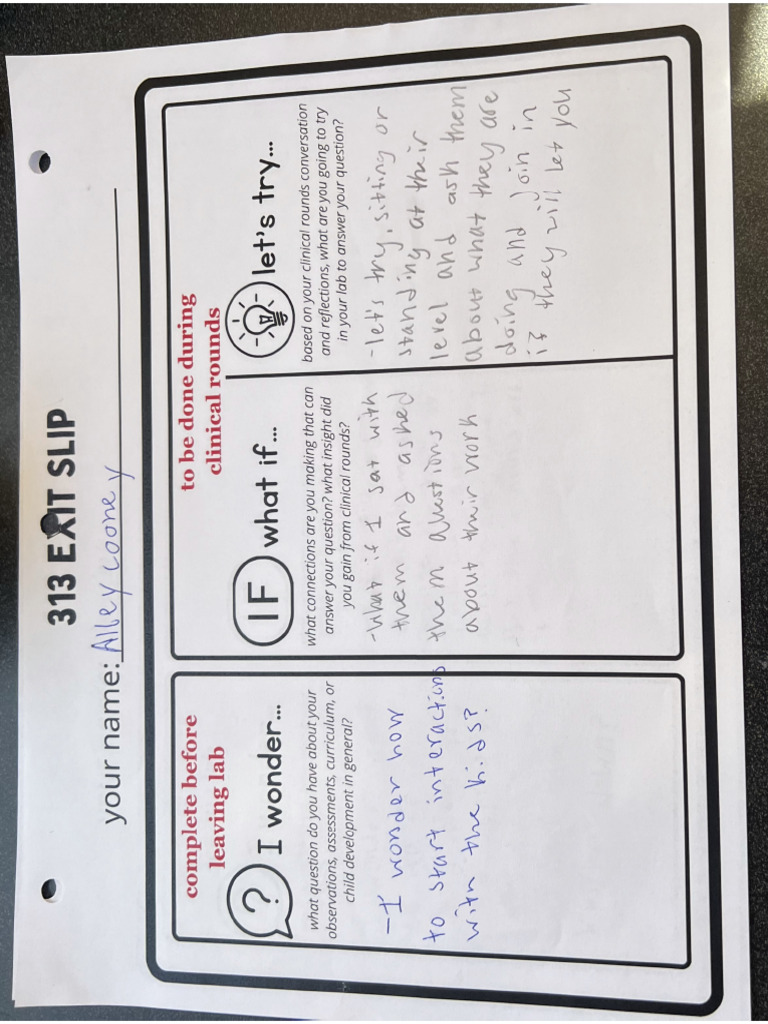 313 EXIT SLIP
your name: Alley Cooney
complete before
leaving lab
? I wonder...
what question do you have about your
observations, assessments, curriculum, or
child development in general?
- I wonder how
to start interactions
with the kids?
to be done during
clinical rounds
IF what if...
what connections are you making that can
answer your question? what insight did
you gain from clinical rounds?
- What if I sat with
them and asked
them questions
about their work
let's try...
based on your clinical rounds conversation
and reflections, what are you going to try
in your lab to answer your question?
- let's try, sitting or
standing at their
level and ask them
about what they are
doing and join in
if they will let you